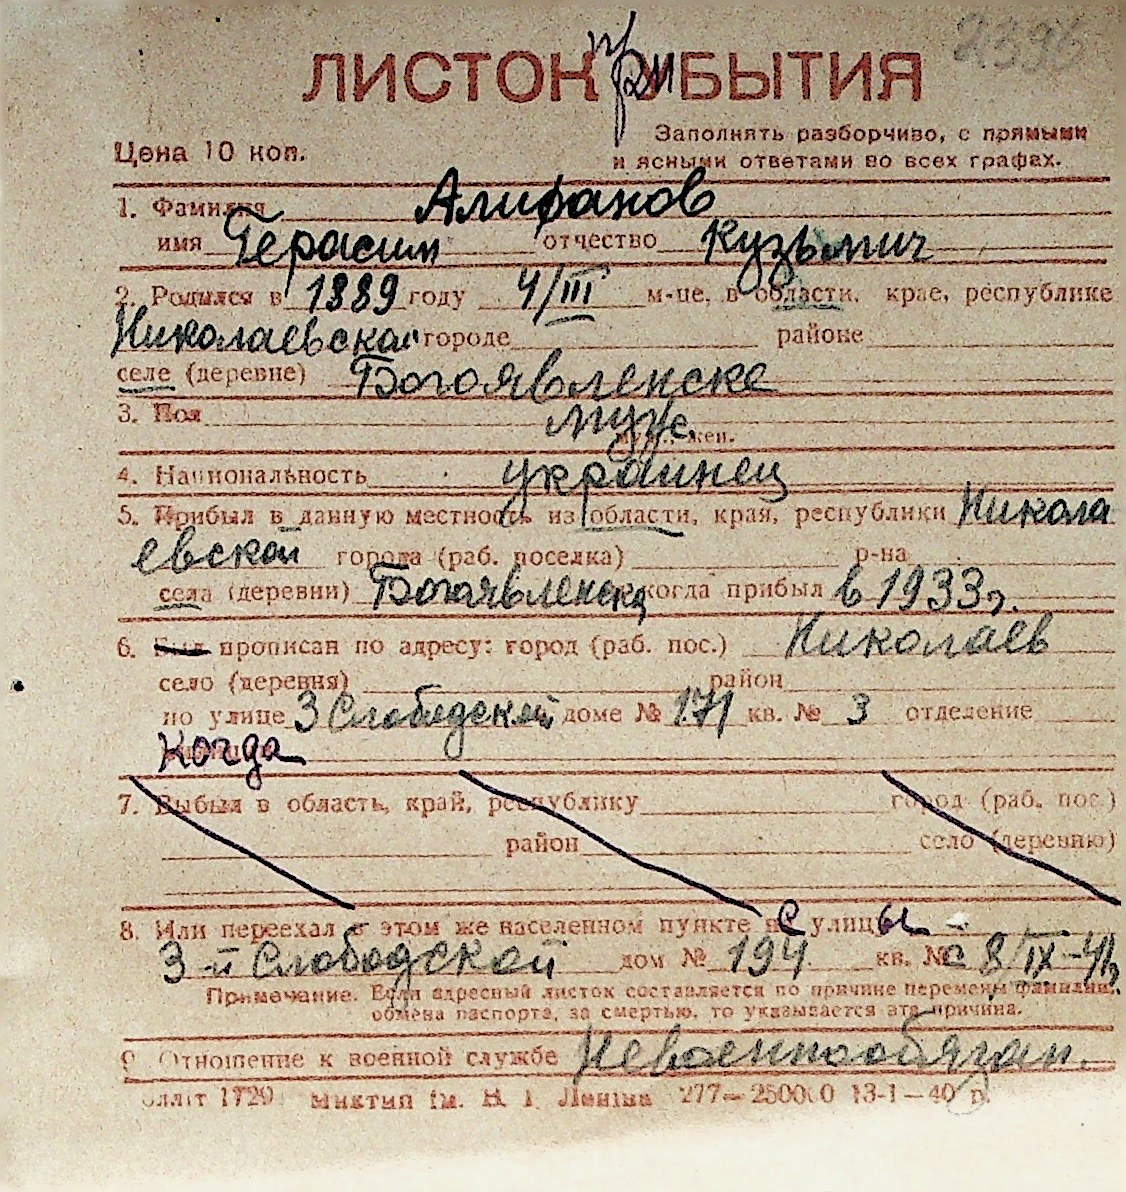 2396
ЛИСТОК при УБЫТИЯ
Цена 10 коп.
Заполнять разборчиво, с прямыми
и ясными ответами во всех графах.
1. Фамилия Алифанов
имя Герасим отчество Кузьмич
2. Родился в 1889 году 4/III м-це, в области, крае, республике
Николаевской городе районе
селе (деревне) Богоявленске
3. Пол муж.
муж., жен.
4. Национальность украинец
5. Прибыл в данную местность из области, края, республики Никола
евской города (раб. поселка) р-на
села (деревни) Богоявленск когда прибыл в 1933 г.
6. Был прописан по адресу: город (раб. пос.) Николаев
село (деревня) район
по улице 3 Слободской доме № 171 кв. № 3 отделение
Когда
7. Выбыл в область, край, республику город (раб. пос.)
район село (деревню)
8. Или переехал в этом же населенном пункте с улицы
3-й Слободской дом № 194 кв. № с 8/IX-41
Примечание. Если адресный листок составляется по причине перемены фамилии,
обмена паспорта, за смертью, то указывается эта причина.
9 Отношение к военной службе Невоеннообязан.
1720 Миктип ім. В. І. Леніна 277—250000 13-1—40 р.